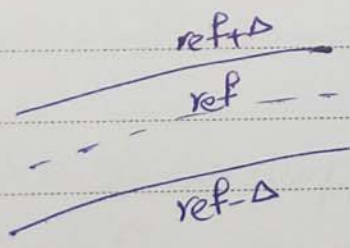 ref+Δ
ref
ref-Δ